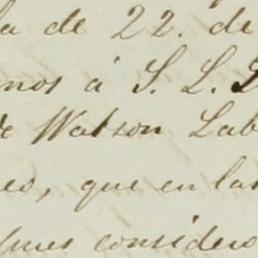 a de 22. de
mos á S. L. L
de Watson Lab
eo, que en la
considero